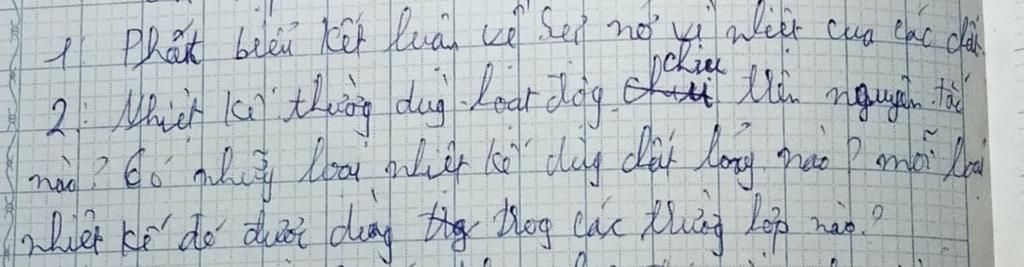 1 Phát biểu kết luận về sự nở vì nhiệt của các chất
2: Nhiệt kế thường dùg hoạt độg chiu trên nguyên tắc
nào? Có nhữg loại nhiệt kế dùg chất lỏng nào? mỗi loại
nhiệt kế đó được dùng trog các trườg hợp nào?